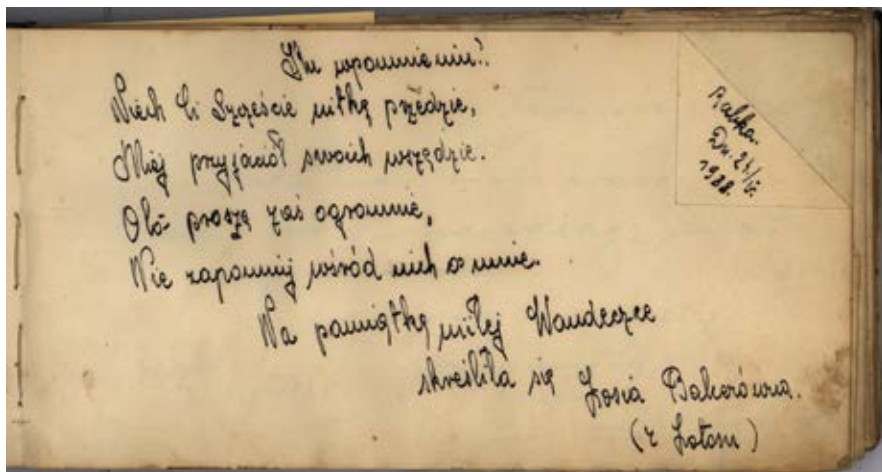 Ku wspomnienie!
Niech Ci Szczęście nitkę przędzie,
Miej przyjaciół swoich wszędzie.
Oto proszę zaś ogromnie,
Nie zapomnij wśród nich o mnie.
Na pamiątkę miłej Wandeczce
skreśliła się Zosia Bakerówna.
Rabka.
Dn. 24/
1938.